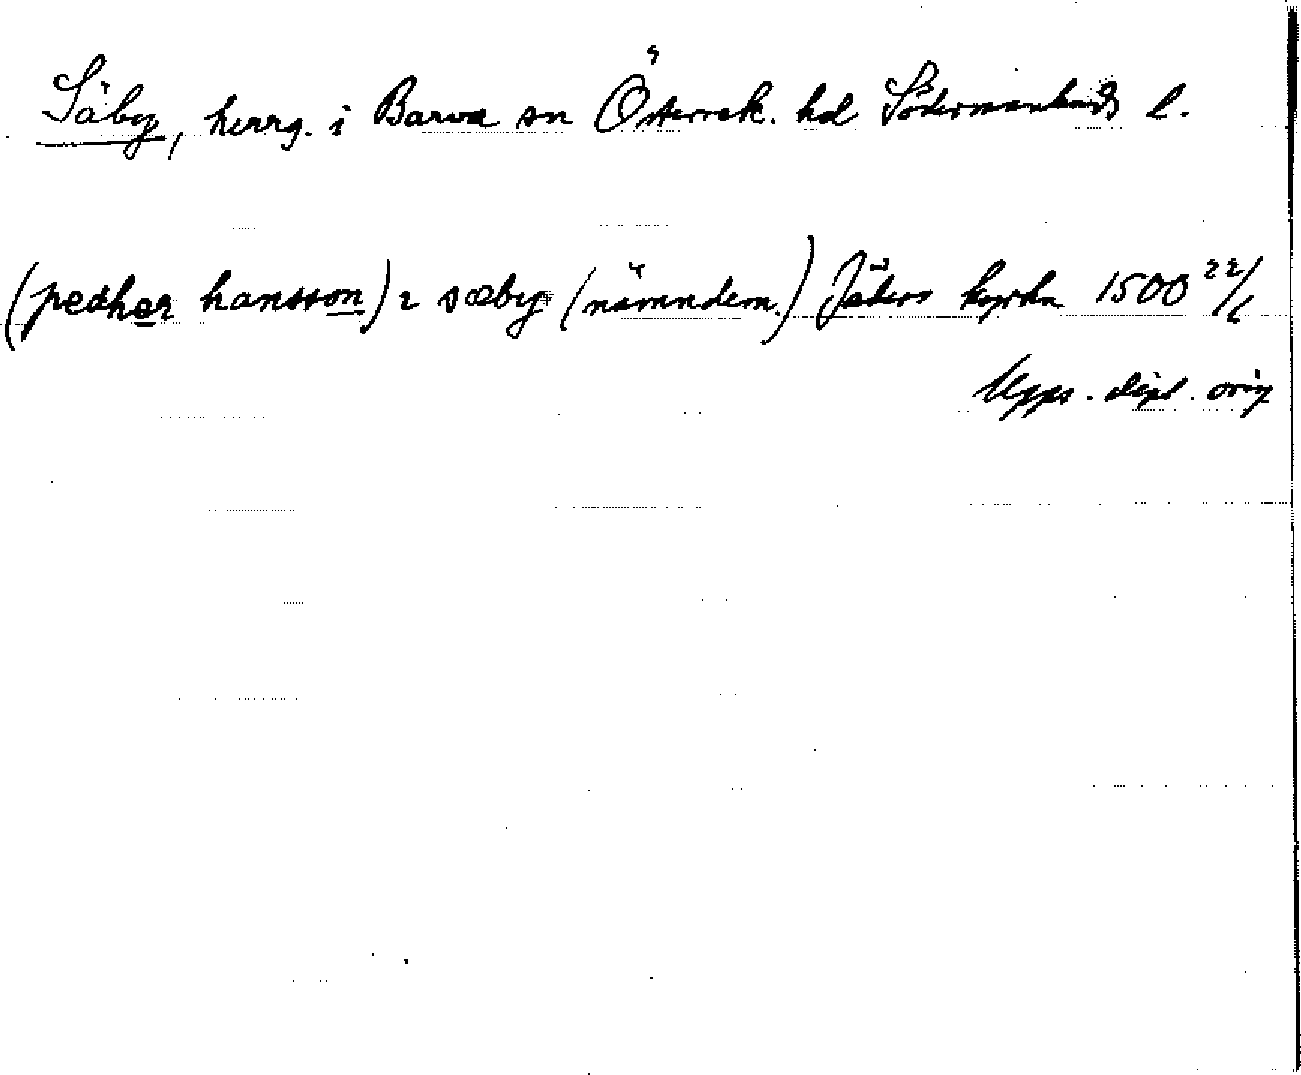 Säby, herrg. i Barva sn Österrek. hd Södermanlands l.
(pedher hansson) i sæby (nämndem.) Jäders kyrka 1500 22/6
Upps. dipl. orig